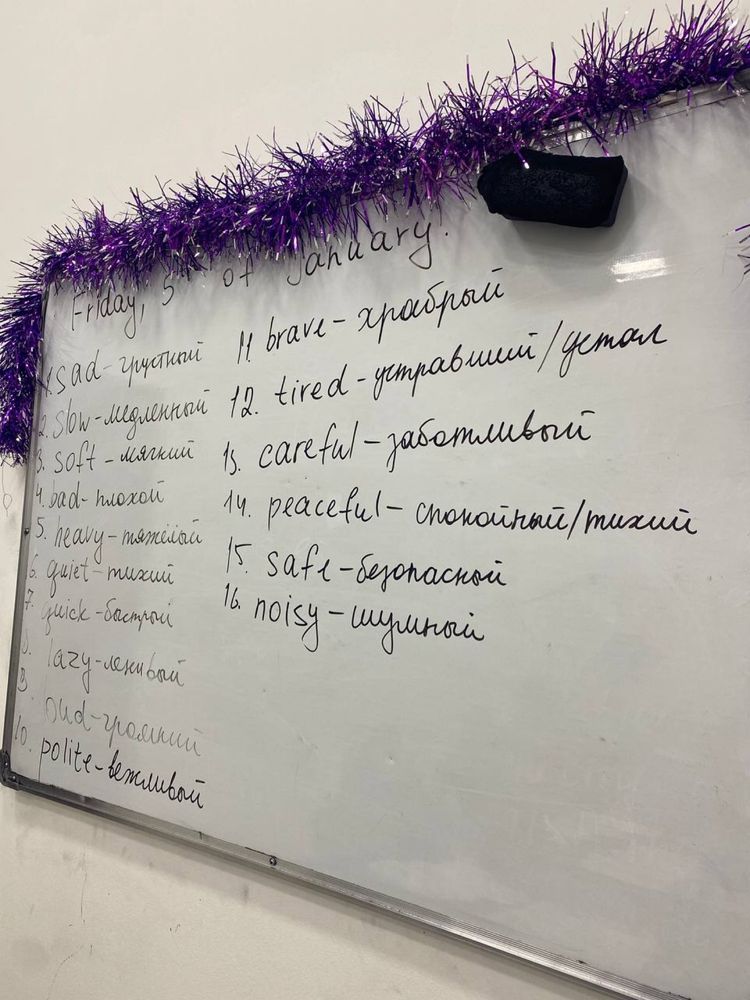 Friday, 5th of January.
1. sad - грустный
2. slow - медленный
3. soft - мягкий
4. bad - плохой
5. heavy - тяжёлый
6. quiet - тихий
7. quick - быстрый
8. lazy - ленивый
9. loud - громкий
10. polite - вежливый
11. brave - храбрый
12. tired - уставший/устал
13. careful - заботливый
14. peaceful - спокойный/тихий
15. safe - безопасной
16. noisy - шумный